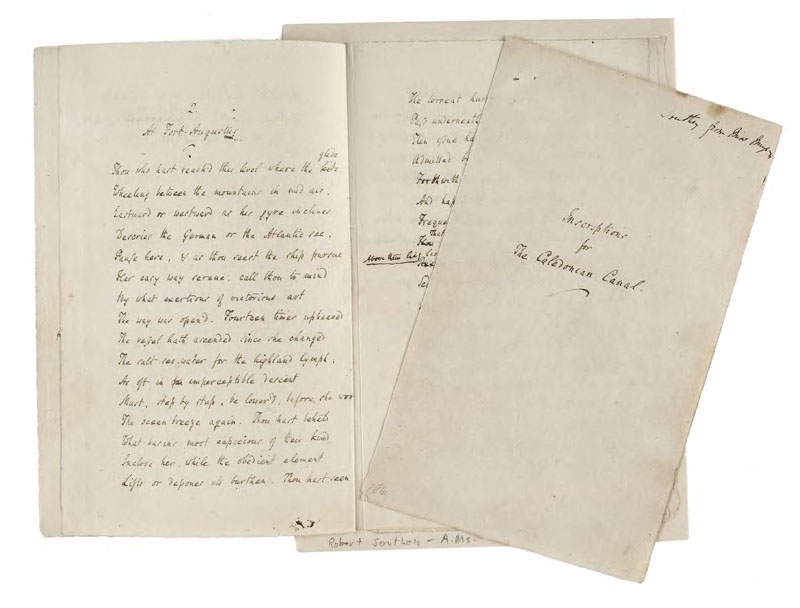 2.
At Fort Augustus
glede
Thou who hast reached this level where the kite
Wheeling between the mountains in mid air,
Eastward or westward as her gyre inclines
Descries the German or the Atlantic sea,
Pause here, & as thou seest the ship pursue
Her easy way serene, call thou to mind
By what exertions of victorious art
The way was open'd. Fourteen times upheaved
The vessel hath ascended since she changed
The salt sea-water for the highland lymph;
As oft in imperceptible descent
Must, step by step, be lower'd, before she woo
The ocean breeze again. Thou hast beheld
What basins most capacious of their kind
Enclose her, while the obedient element
Lifts or depones its burthen. Thou hast seen
The torrent hur
Pass underneath
Then
Admitted
Forthwith
And hap
Freque
That
Thou
Above them
Southey from
Inscriptions
for
The Caledonian Canal.
Robert Southey - A.Ms.